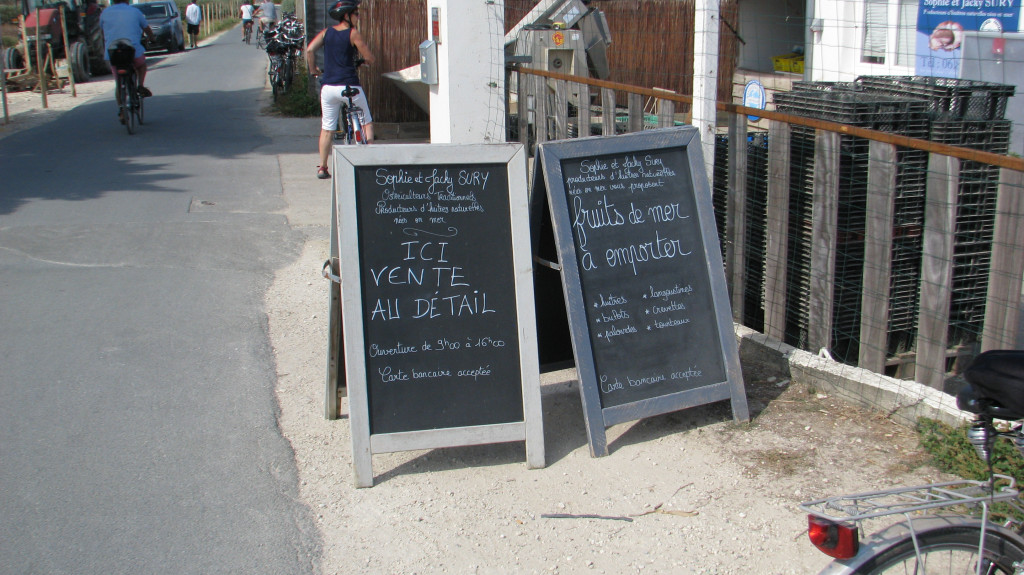 Sophie et Jacky SURY
Ostréiculteurs Traditionnels
Producteurs d'huîtres naturelles
nées en mer
ICI
VENTE
AU DÉTAIL
Ouverture de 9h00 à 16h00
Carte bancaire acceptée
Sophie et Jacky SURY
producteurs d'huîtres naturelles
nées en mer vous proposent
fruits de mer
à emporter
* huîtres
* bulots
* palourdes
* langoustines
* crevettes
* tourteaux
Carte bancaire acceptée
Sophie et Jacky SURY